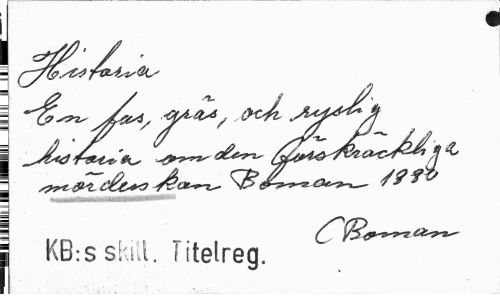 Historia
En fas, gräs, och ryslig
historia om den förskräckliga
mörderskan Boman 1880
(Boman
KB:s skill. Titelreg.